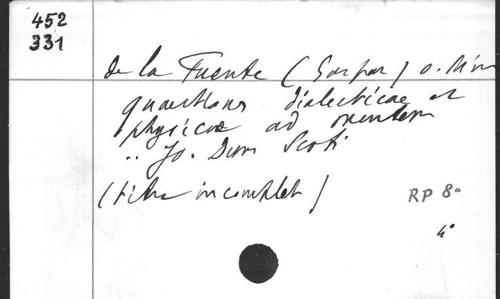 452
331
de la Fuente (Gaspar) o. Min
quaestiones dialecticae et
physicae ad mentem
.. Jo. Duns Scoti
(titre incomplet)
RP 8°
4°